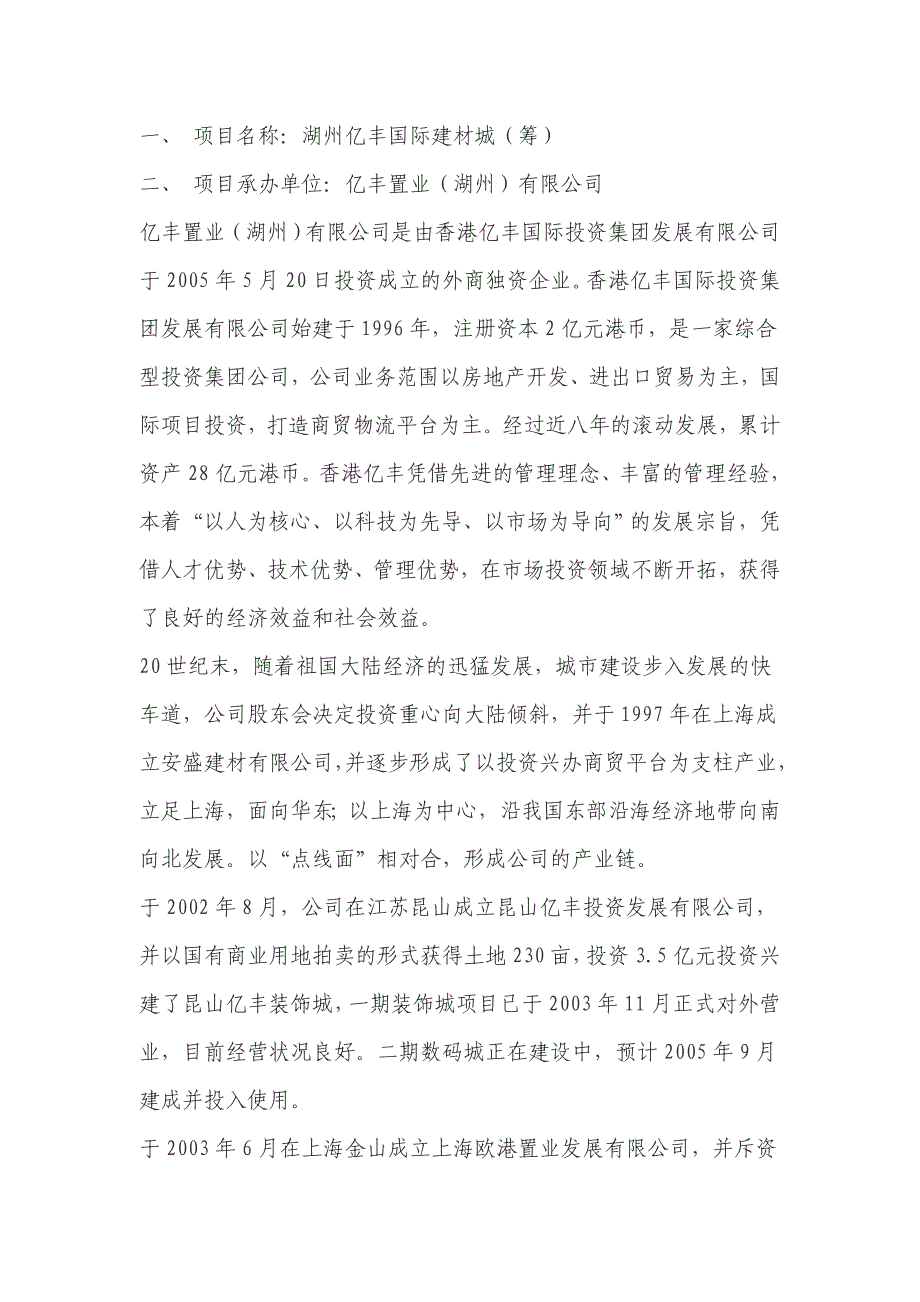 一、 项目名称：湖州亿丰国际建材城（筹）
二、 项目承办单位：亿丰置业（湖州）有限公司
亿丰置业（湖州）有限公司是由香港亿丰国际投资集团发展有限公司
于 2005 年 5 月 20 日投资成立的外商独资企业。香港亿丰国际投资集
团发展有限公司始建于 1996 年，注册资本 2 亿元港币，是一家综合
型投资集团公司，公司业务范围以房地产开发、进出口贸易为主，国
际项目投资，打造商贸物流平台为主。经过近八年的滚动发展，累计
资产 28 亿元港币。香港亿丰凭借先进的管理理念、丰富的管理经验，
本着“以人为核心、以科技为先导、以市场为导向”的发展宗旨，凭
借人才优势、技术优势、管理优势，在市场投资领域不断开拓，获得
了良好的经济效益和社会效益。
20 世纪末，随着祖国大陆经济的迅猛发展，城市建设步入发展的快
车道，公司股东会决定投资重心向大陆倾斜，并于 1997 年在上海成
立安盛建材有限公司，并逐步形成了以投资兴办商贸平台为支柱产业，
立足上海，面向华东；以上海为中心，沿我国东部沿海经济地带向南
向北发展。以“点线面”相对合，形成公司的产业链。
于 2002 年 8 月，公司在江苏昆山成立昆山亿丰投资发展有限公司，
并以国有商业用地拍卖的形式获得土地 230 亩，投资 3.5 亿元投资兴
建了昆山亿丰装饰城，一期装饰城项目已于 2003 年 11 月正式对外营
业，目前经营状况良好。二期数码城正在建设中，预计 2005 年 9 月
建成并投入使用。
于 2003 年 6 月在上海金山成立上海欧港置业发展有限公司，并斥资